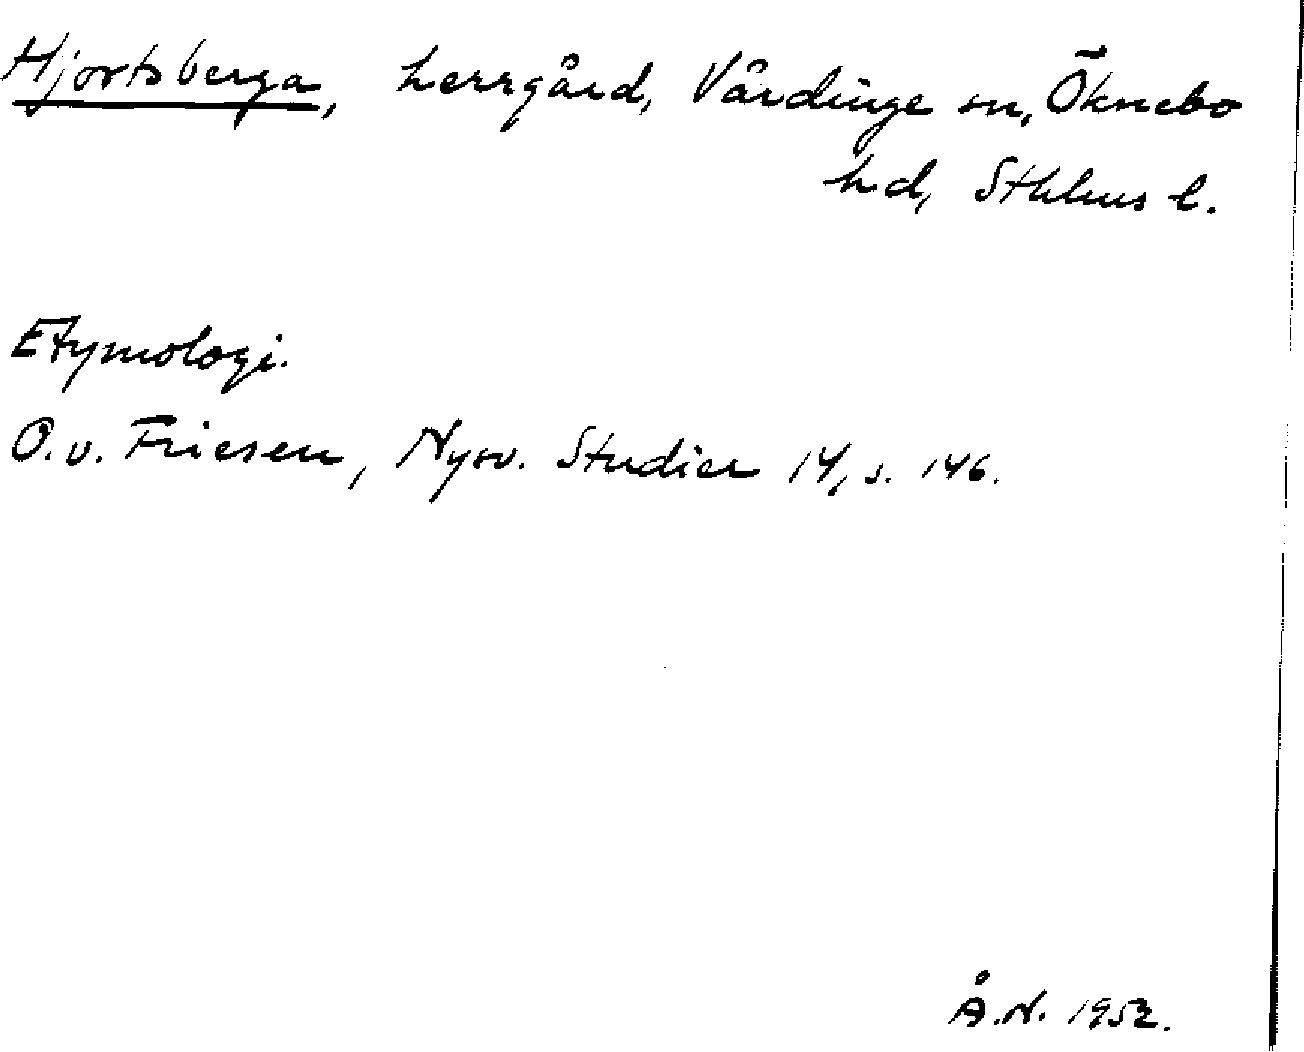 Hjortsberga, herrgård, Vårdinge sn, Öknebo
hd, Sthlms l.
Etymologi.
O.v. Friesen, Nysv. Studier 14, s. 146.
Å.N. 1952.